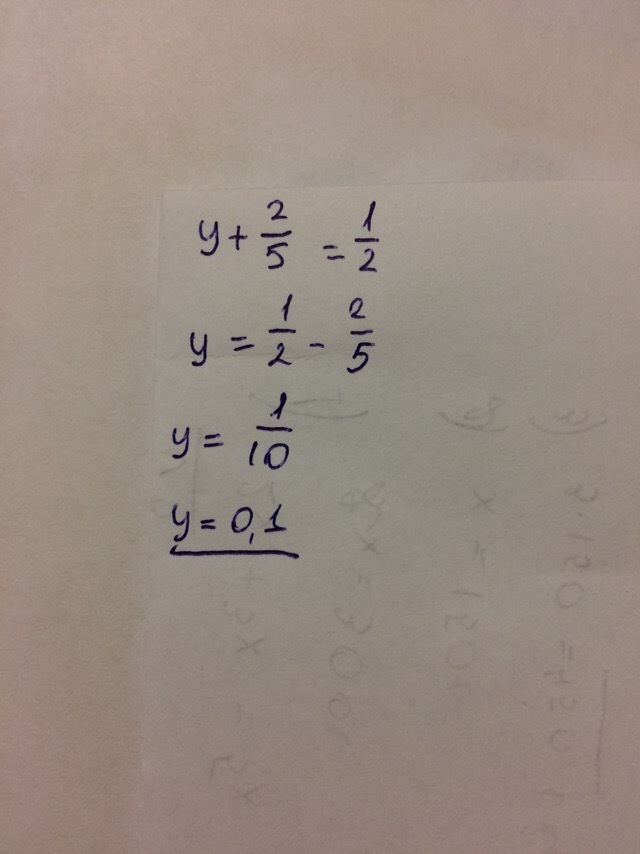 y + 2/5 = 1/2
y = 1/2 - 2/5
y = 1/10
y = 0,1